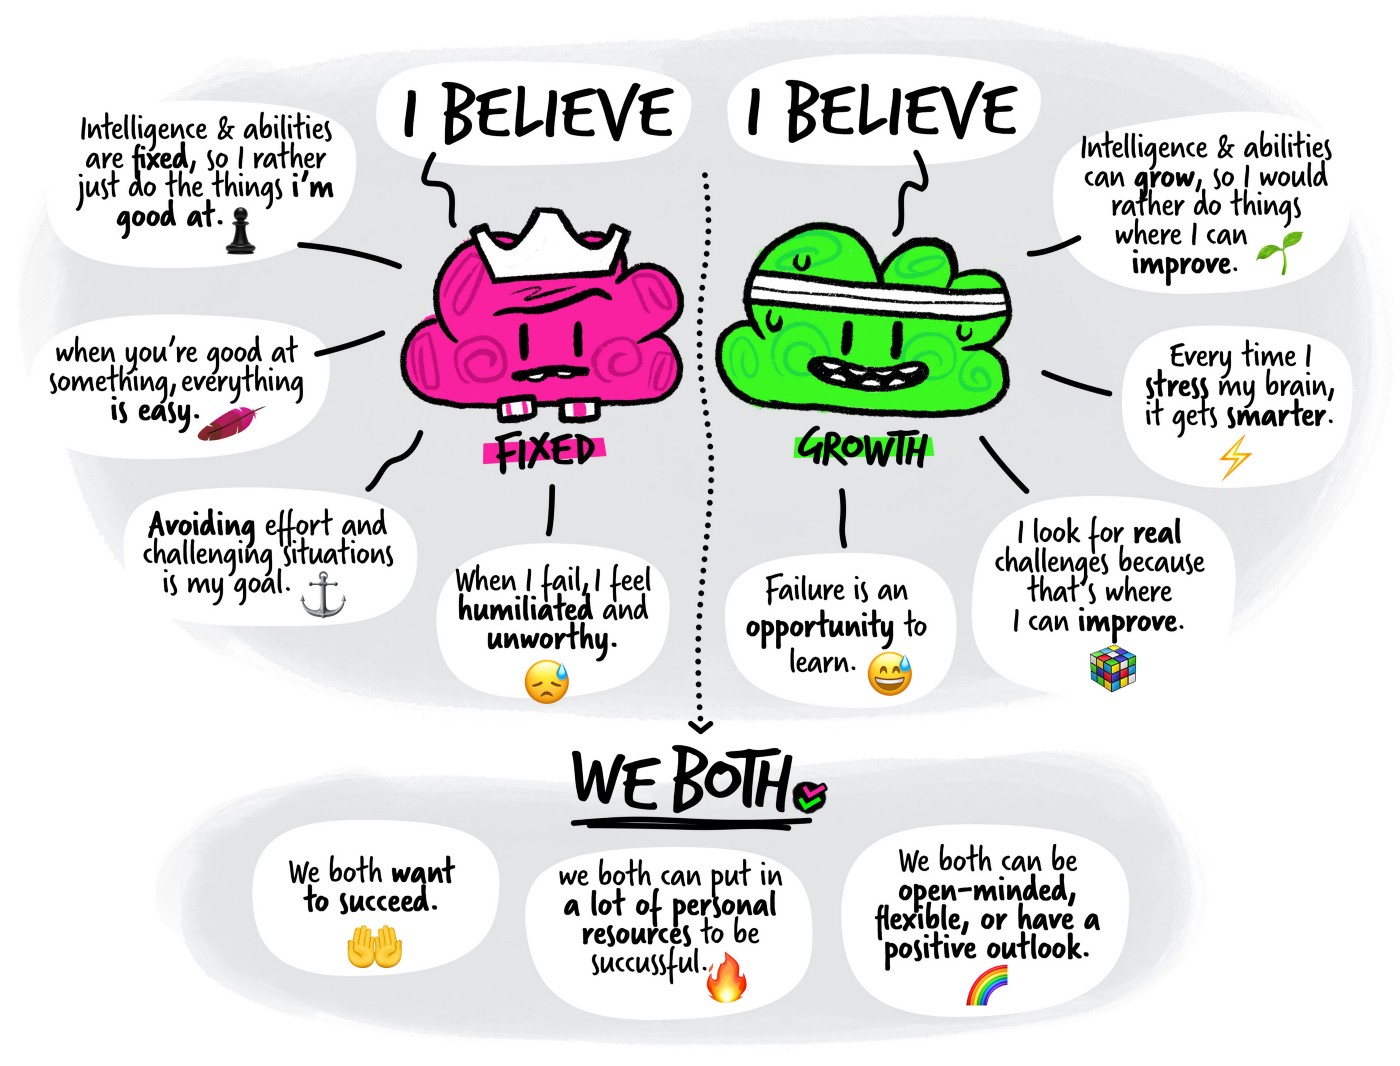 I BELIEVE
Intelligence & abilities
are fixed, so I rather
just do the things i'm
good at.
when you're good at
something, everything
is easy.
Avoiding effort and
challenging situations
is my goal.
When I fail, I feel
humiliated and
unworthy.
FIXED
I BELIEVE
Intelligence & abilities
can grow, so I would
rather do things
where I can
improve.
Every time I
stress my brain,
it gets smarter.
I look for real
challenges because
that's where
I can improve.
Failure is an
opportunity to
learn.
GROWTH
WE BOTH
We both want
to succeed.
we both can put in
a lot of personal
resources to be
succussful.
We both can be
open-minded,
flexible, or have a
positive outlook.